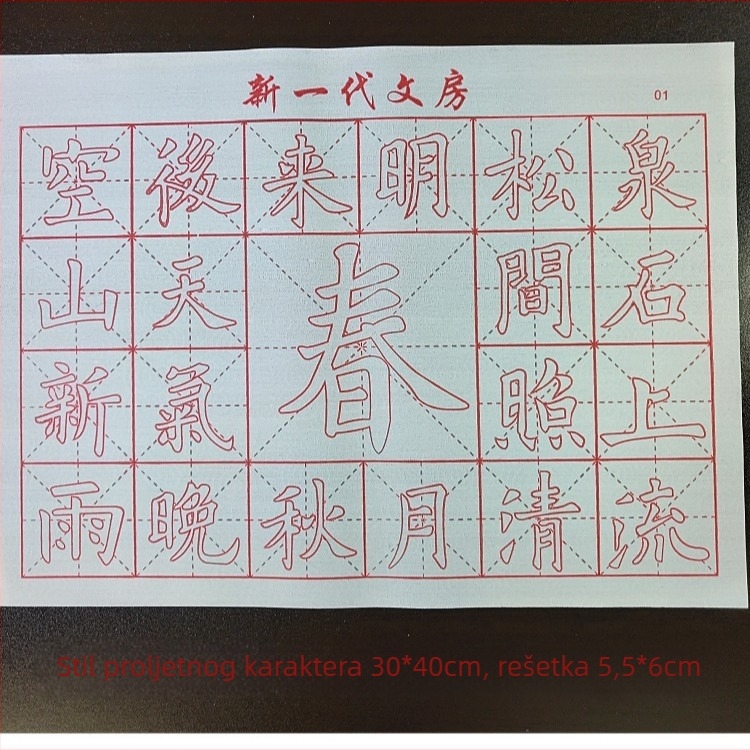 新一代文房
01
空後来明松泉
山天春間石
新氣照上
雨晚秋月清流
Stil proljetnog karaktera 30*40cm, rešetka 5,5*6cm